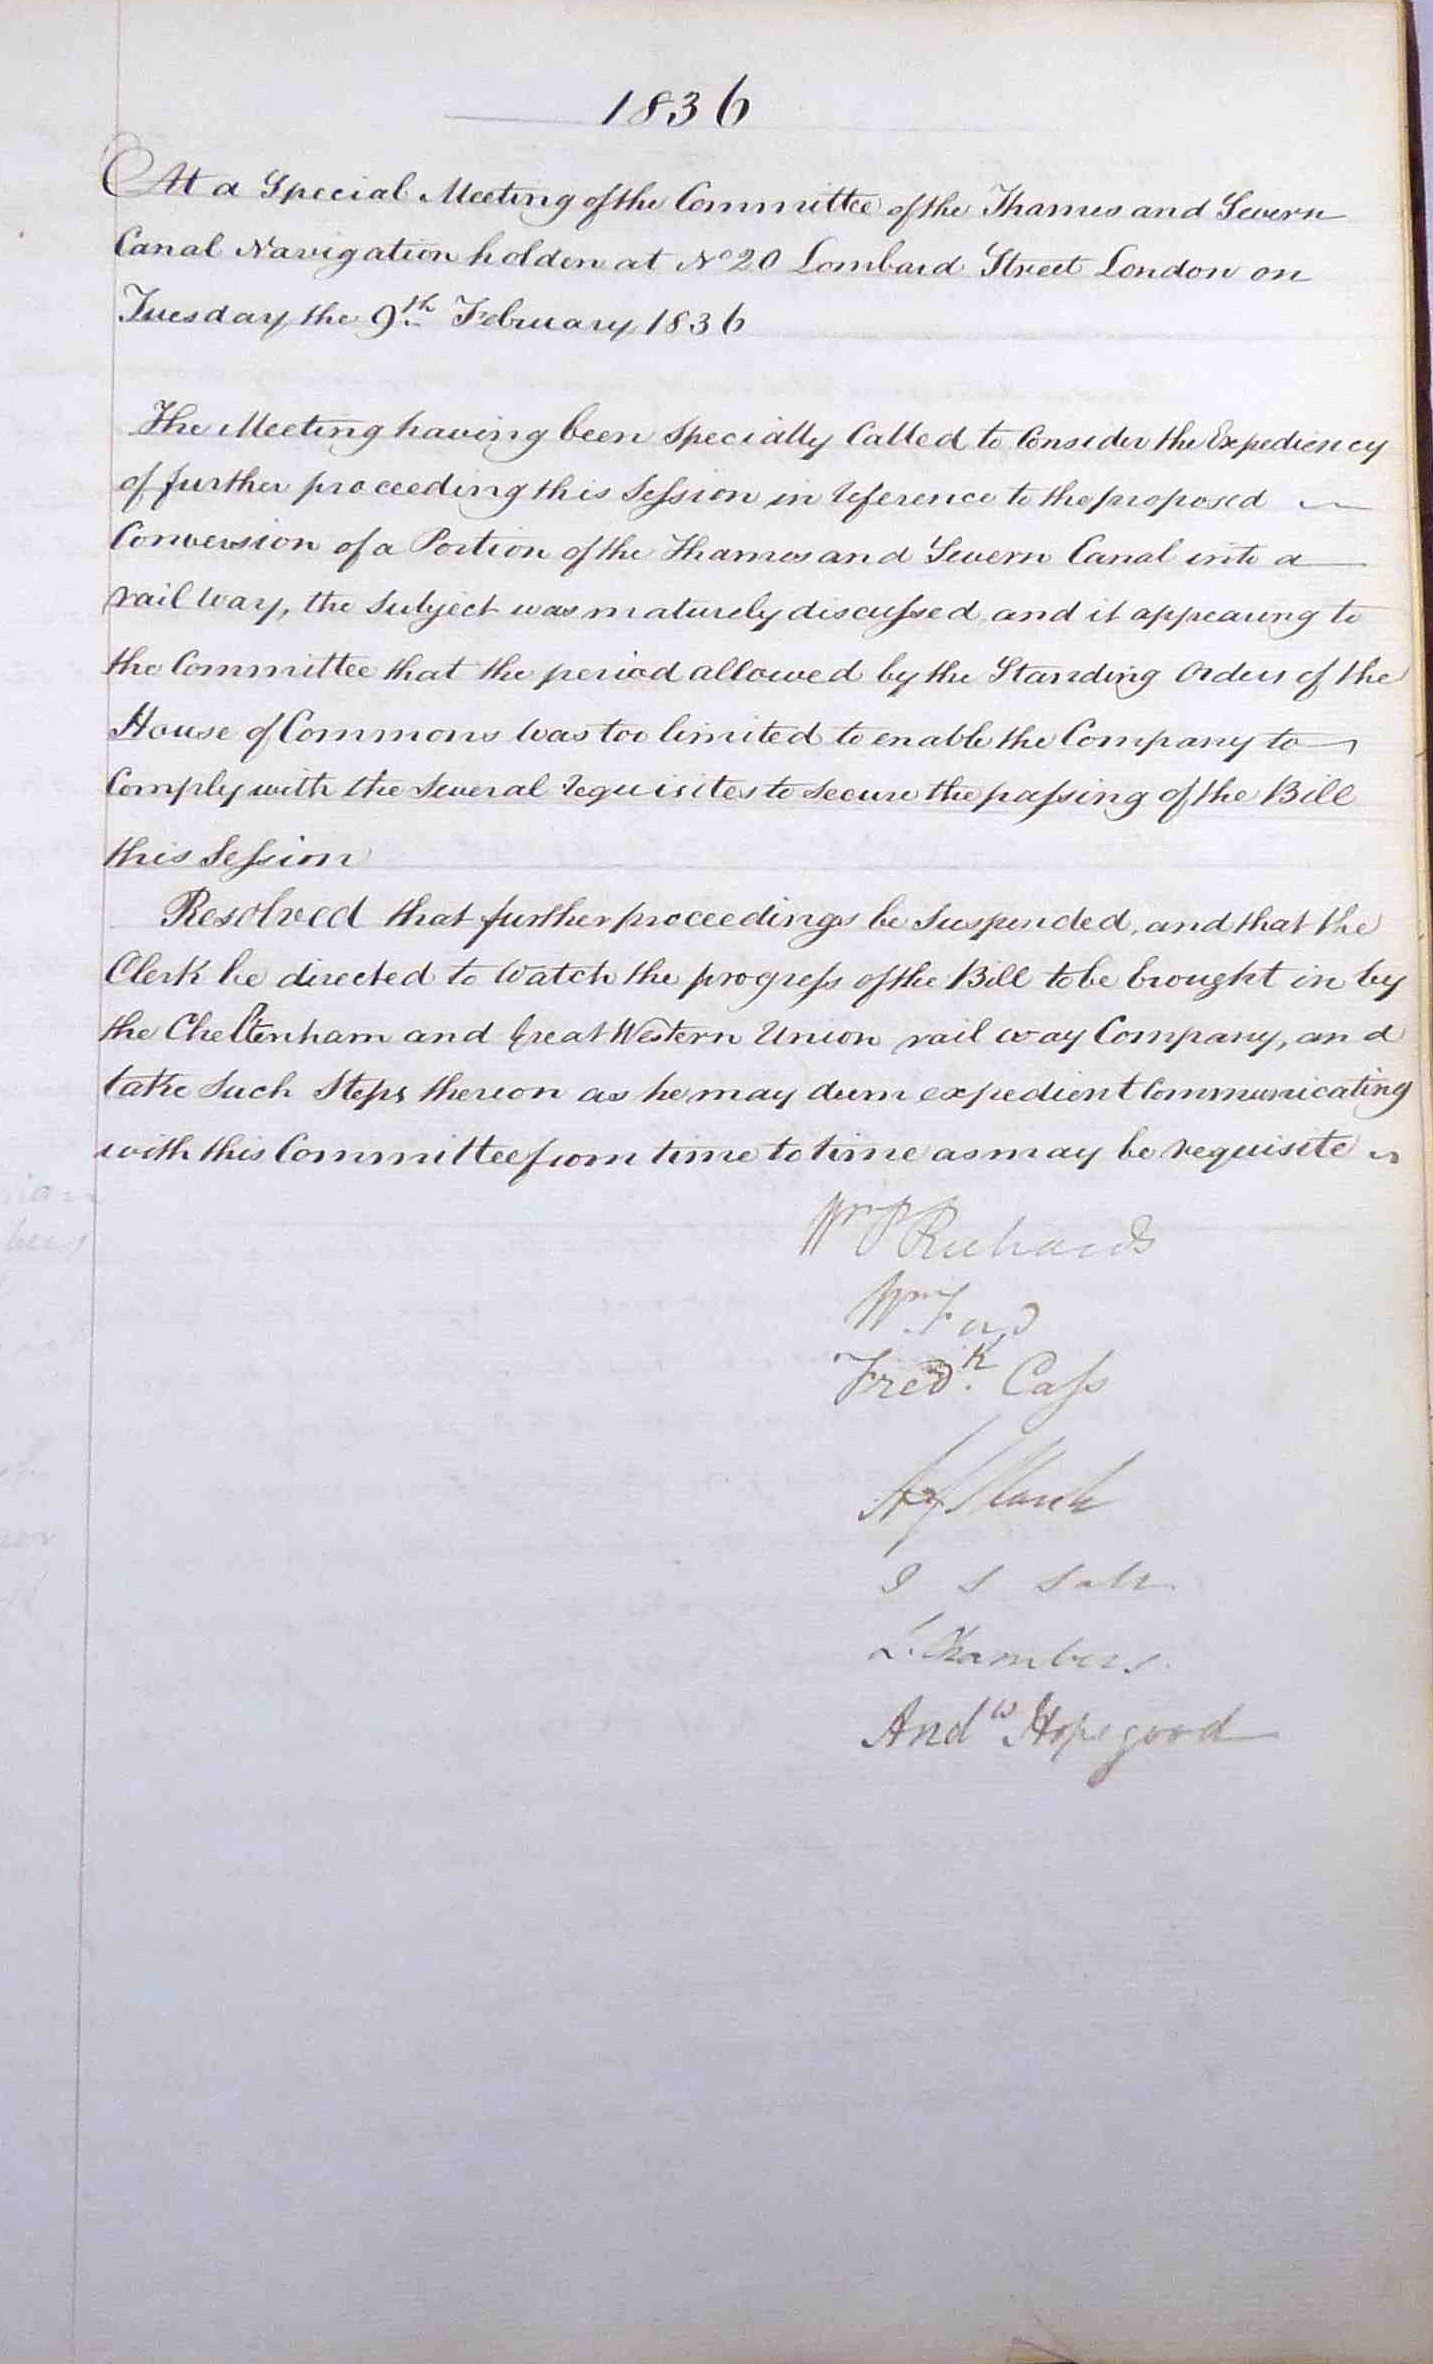 1836
At a Special Meeting of the Committee of the Thames and Severn
Canal Navigation holden at No 20 Lombard Street London on
Tuesday the 9th February 1836
The Meeting having been Specially Called to Consider the Expediency
of further proceeding this Session in reference to the proposed
Conversion of a Portion of the Thames and Severn Canal into a
rail way, the Subject was maturely discussed, and it appearing to
the Committee that the period allowed by the Standing Orders of the
House of Commons was too limited to enable the Company to
Comply with the Several requisites to secure the passing of the Bill
this Session
Resolved that further proceedings be Suspended, and that the
Clerk be directed to Watch the progress of the Bill to be brought in by
the Cheltenham and Great Western Union rail way Company, and
take Such Steps thereon as he may deem expedient Communicating
with this Committee from time to time as may be requisite
Wm P Richards
Wm Ford
Fredk. Cass
J S Salt
L. Chambers
Andw Hopegood